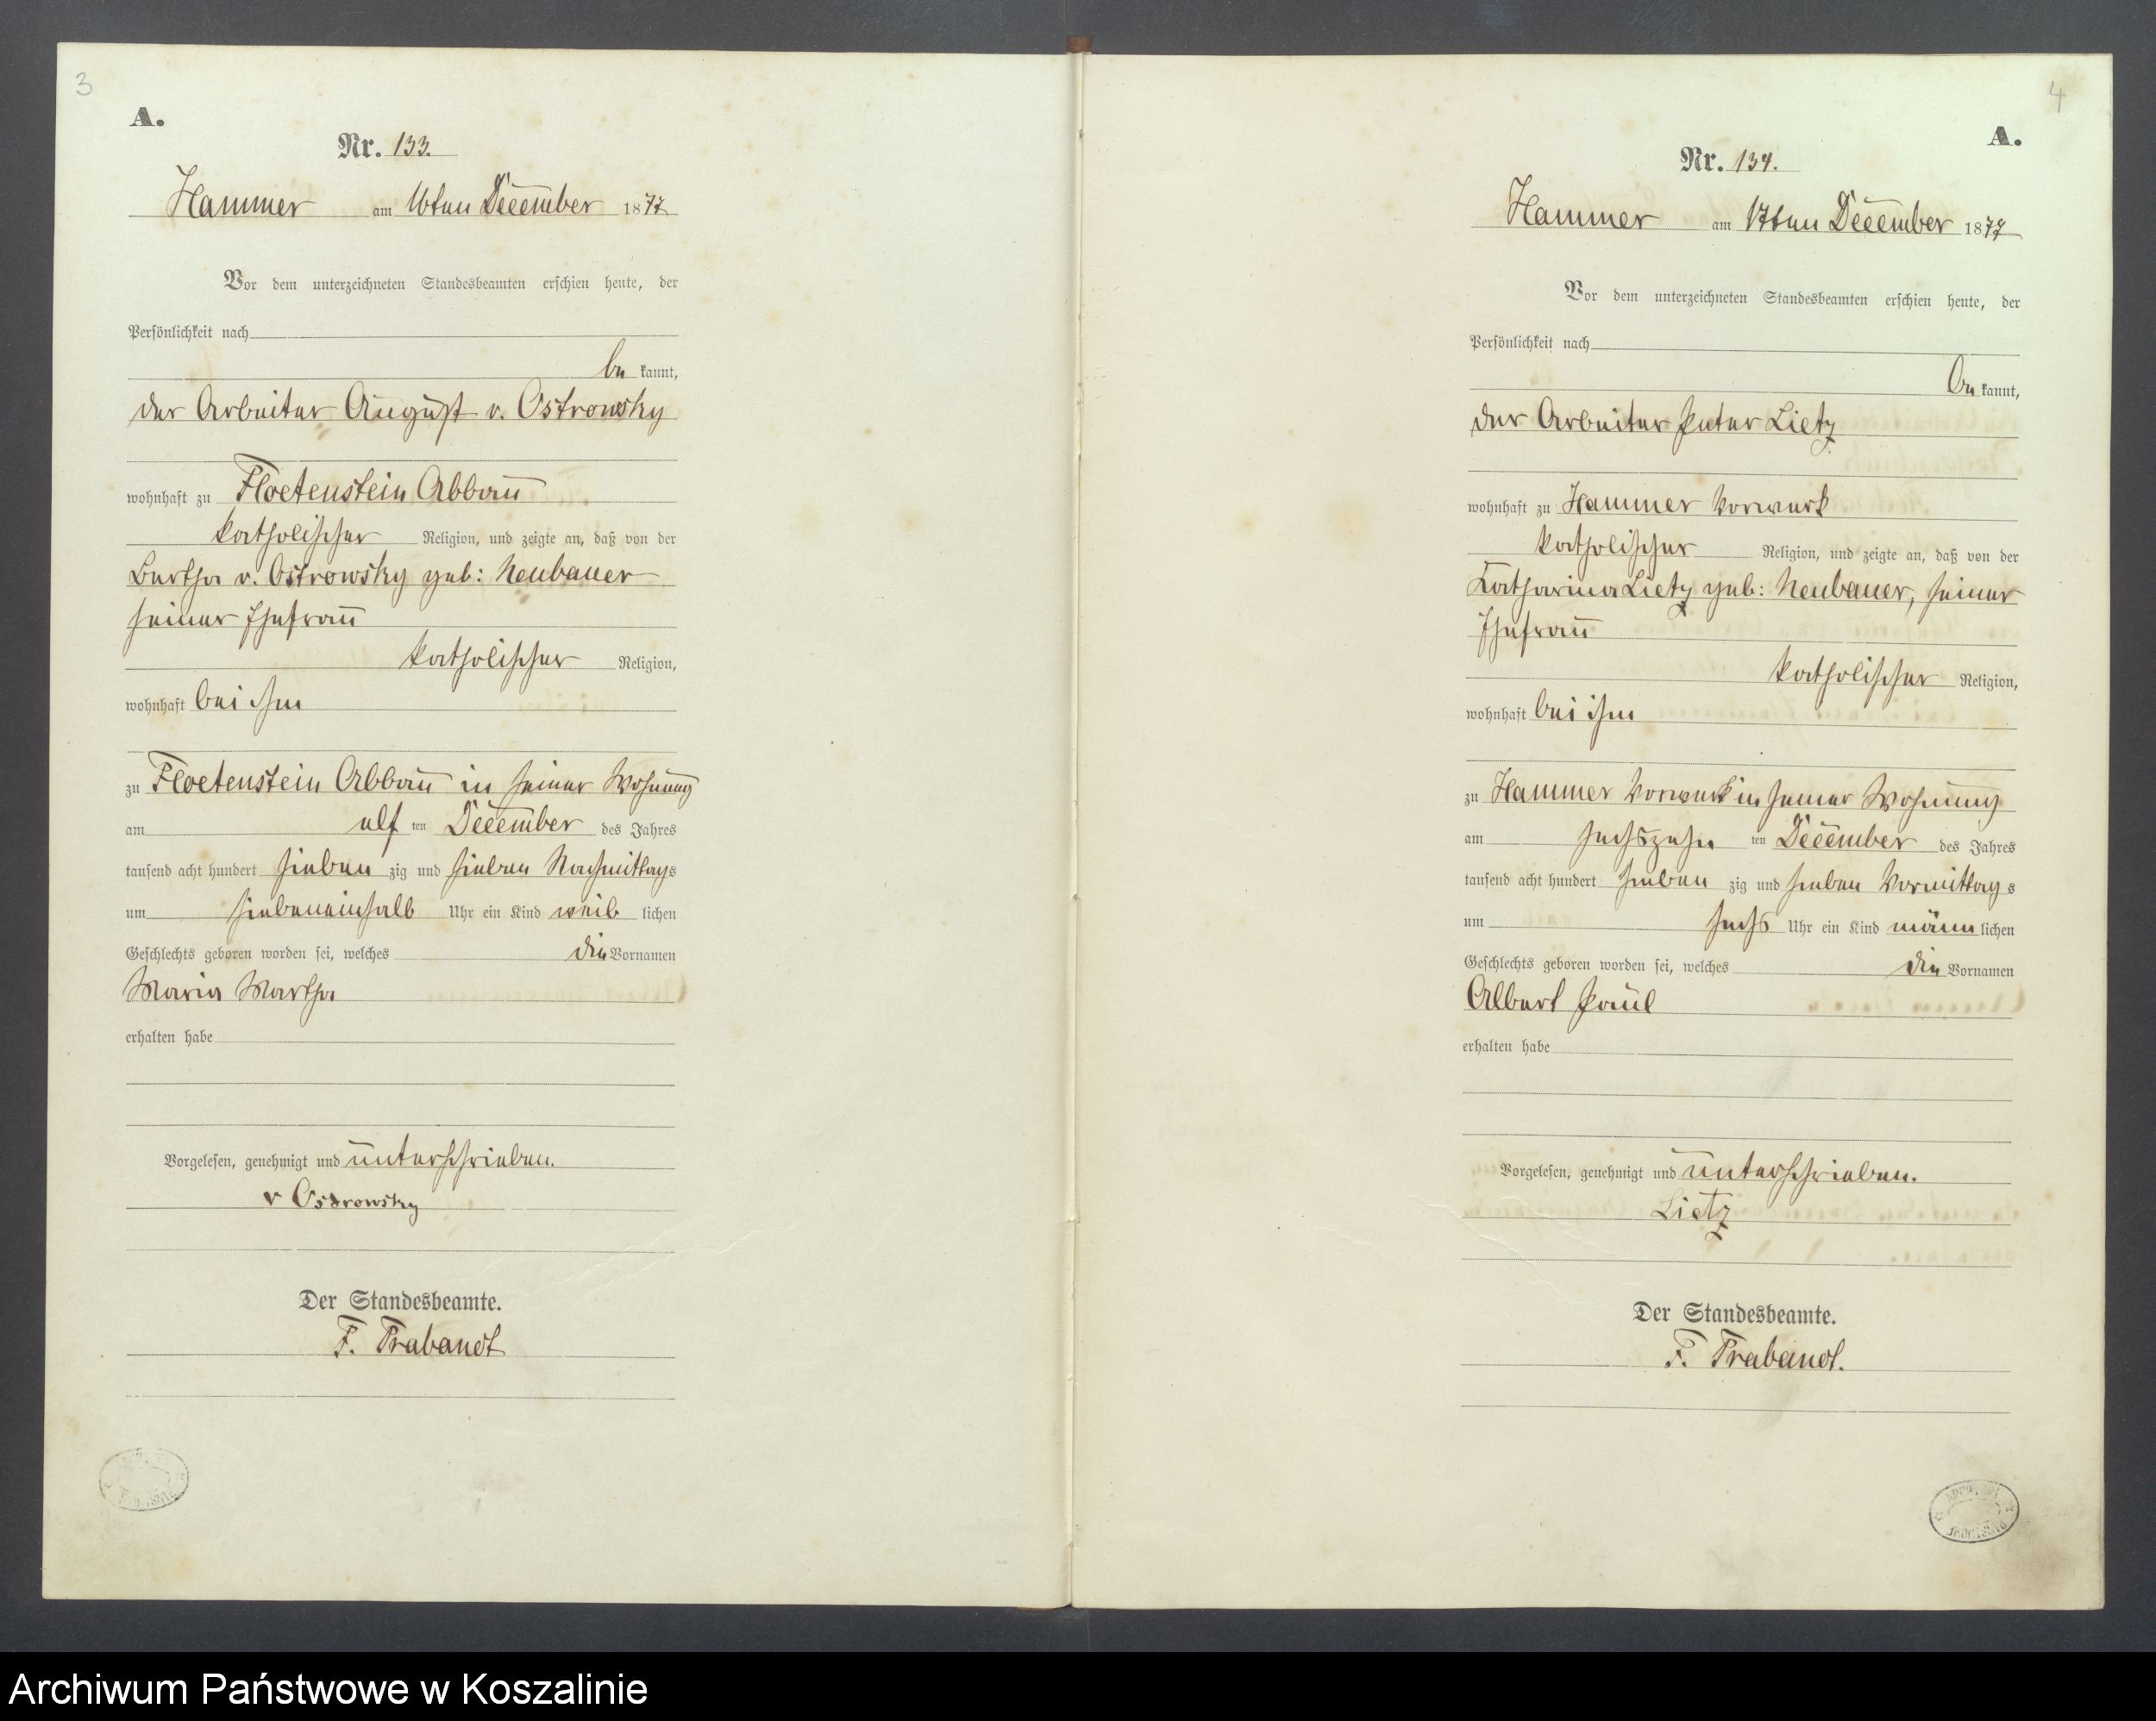 3
A.
Nr. 133.
Hammer am 16ten December 1877
Vor dem unterzeichneten Standesbeamten erschien heute, der
Persönlichkeit nach
be kannt,
der Arbeiter August v. Ostrowsky
wohnhaft zu Floetenstein Abbau
katholischer Religion, und zeigte an, daß von der
Bertha v. Ostrowsky geb: Neubauer
seiner Ehefrau
katholischer Religion,
wohnhaft bei ihm
zu Floetenstein Abbau in seiner Wohnung
am elf ten December des Jahres
tausend acht hundert sieben zig und sieben Nachmittags
um siebeneinhalb Uhr ein Kind weib lichen
Geschlechts geboren worden sei, welches die Vornamen
Maria Martha
erhalten habe
Vorgelesen, genehmigt und unterschrieben.
v Ostrowsky
Der Standesbeamte.
F. Trabandt
4
A.
Nr. 134.
Hammer am 17ten December 1877
Vor dem unterzeichneten Standesbeamten erschien heute, der
Persönlichkeit nach
be kannt,
der Arbeiter Peter Lietz
wohnhaft zu Hammer Vorwerk
katholischer Religion, und zeigte an, daß von der
Katharina Lietz geb: Neubauer, seiner
Ehefrau
katholischer Religion,
wohnhaft bei ihm
zu Hammer Vorwerk in seiner Wohnung
am sechszehn ten December des Jahres
tausend acht hundert sieben zig und sieben Vormittags
um sechs Uhr ein Kind männ lichen
Geschlechts geboren worden sei, welches die Vornamen
Albert Paul
erhalten habe
Vorgelesen, genehmigt und unterschrieben.
Lietz
Der Standesbeamte.
F. Trabandt.
Archiwum Państwowe w Koszalinie